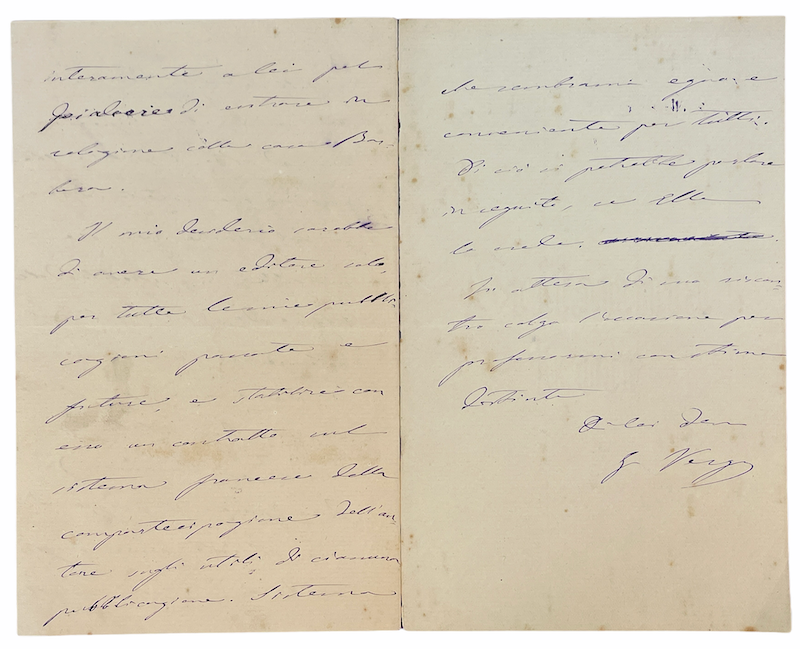 interamente a lei pel
piacere di entrare in
relazione colla casa Bar-
bera.
Il mio desiderio sarebbe
di avere un editore solo,
per tutte le mie pubbli
cazioni passate e
future, e stabilire con
esso un contratto sul
sistema francese della
compartecipazione dell'au-
tore sugli utili di ciascuna
pubblicazione. Sistema
che sembrami equo e
conveniente per tutti.
Di ciò si potrebbe parlare
in seguito, se Ella
lo crede.
In attesa di suo riscon-
tro colgo l'occasione per
professarmi con stima
distinta
Di lei Dev
G Verga